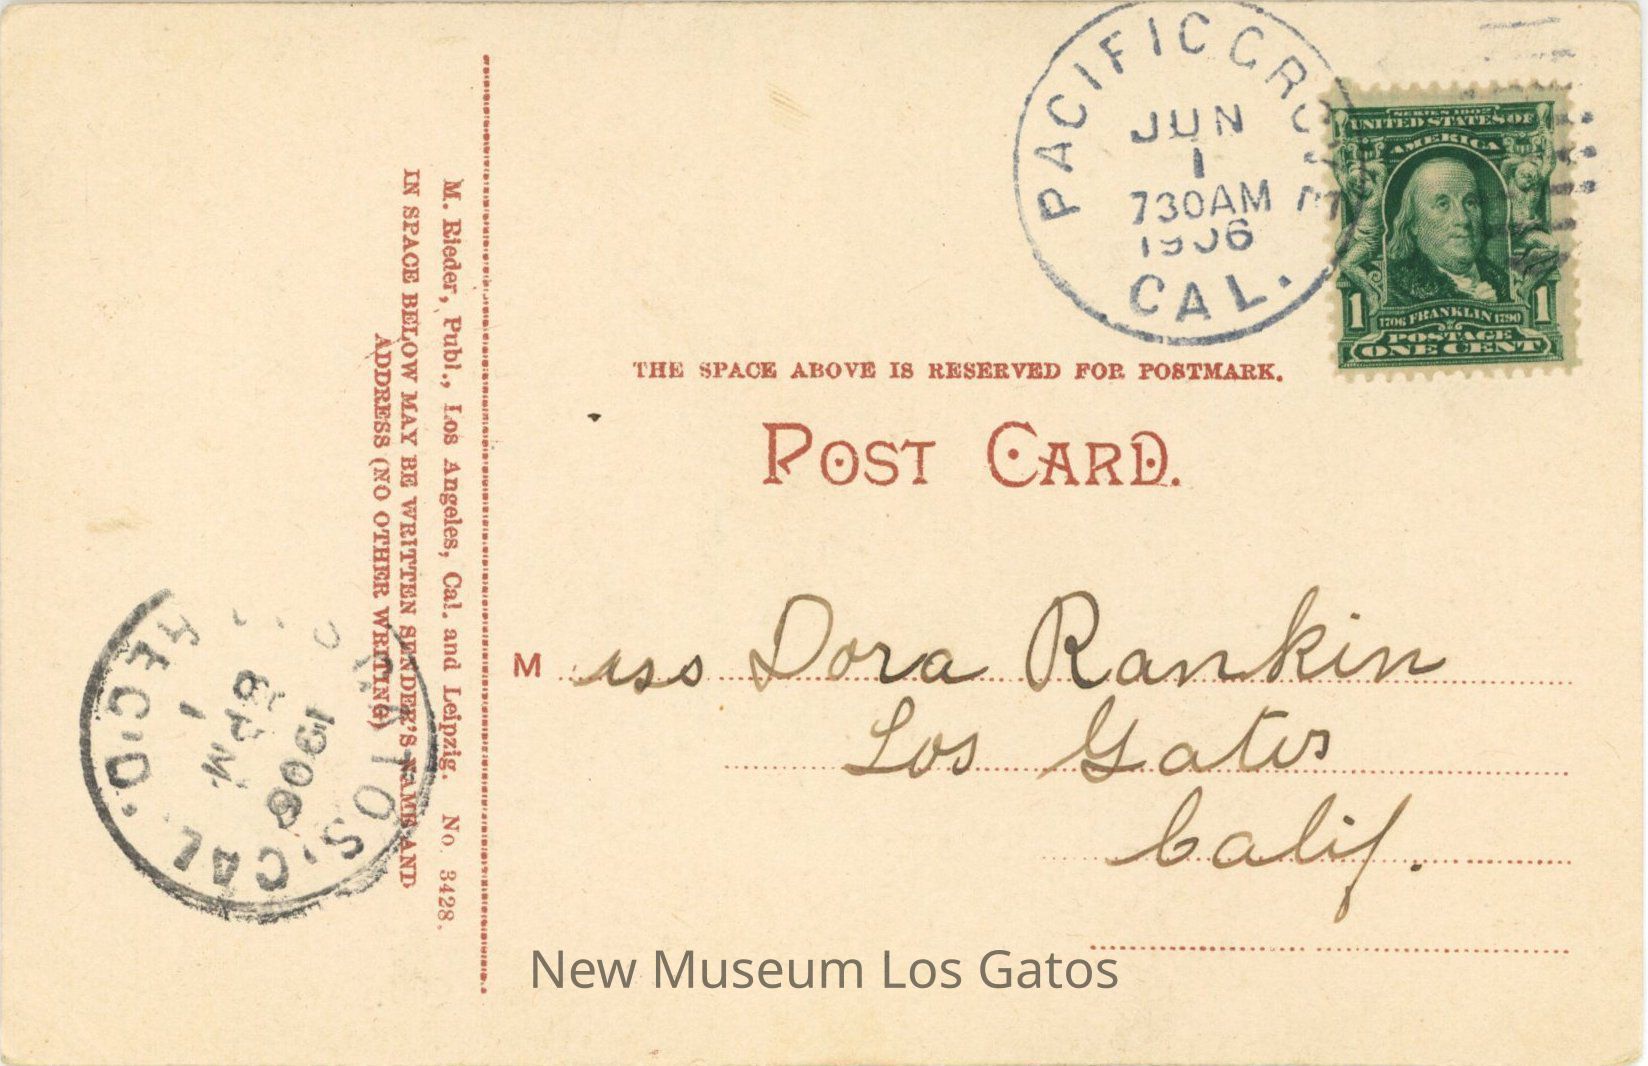 PACIFIC GROVE
JUN
1
730AM
1906
CAL.
SERIES 1902
UNITED STATES OF
AMERICA
1 1
1706 FRANKLIN 1790
POSTAGE
ONE CENT
THE SPACE ABOVE IS RESERVED FOR POSTMARK.
POST CARD.
M iss Dora Rankin
Los Gatos
Calif.
M. Rieder, Publ., Los Angeles, Cal. and Leipzig. No. 3428.
IN SPACE BELOW MAY BE WRITTEN SENDER'S NAME AND
ADDRESS (NO OTHER WRITING)
TOS. CAL.
REC'D.
1
8 PM
1906
New Museum Los Gatos